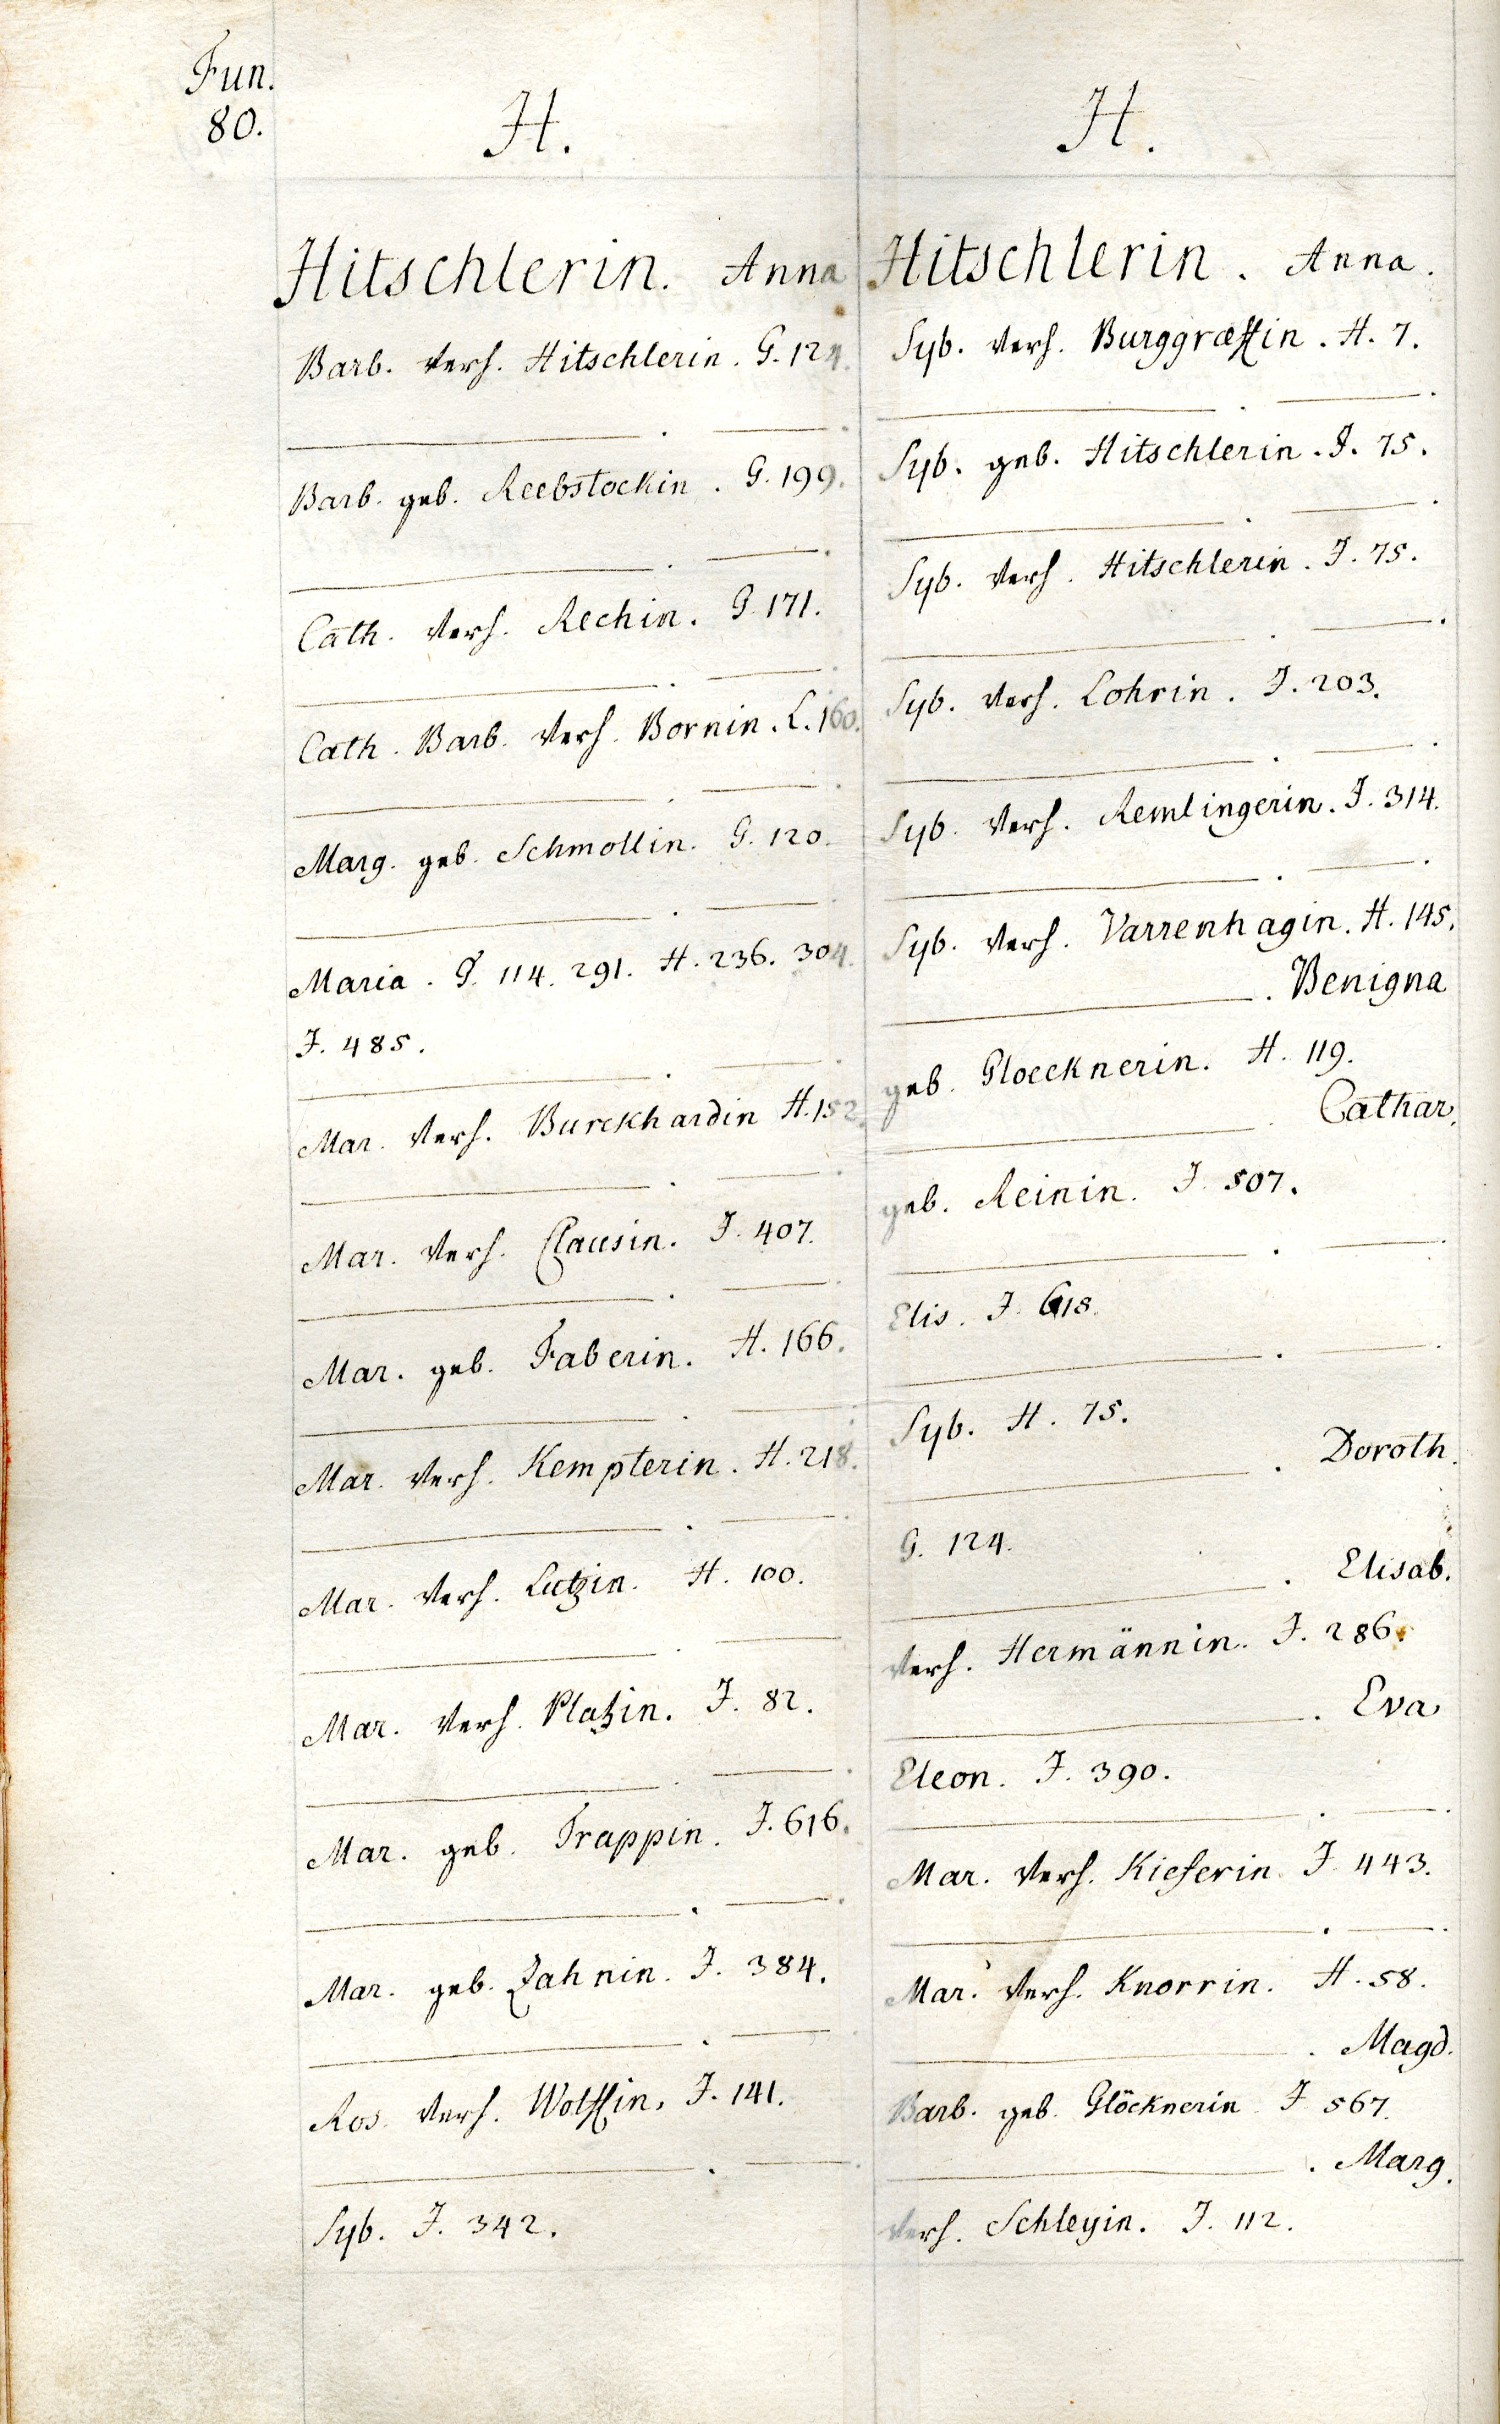 Fun.
80.
H.
Hitschlerin. Anna
Barb. verh. Hitschlerin. G. 124.
Barb. geb. Reebstockin. G. 199.
Cath. verh. Rechin. G. 171.
Cath. Barb. verh. Bornin. L. 160.
Marg. geb. Schmollin. G. 120.
Maria. G. 114. 291. H. 236. 304.
J. 485.
Mar. verh. Burckhardin H. 152.
Mar. verh. Clausin. J. 407.
Mar. geb. Faberin. H. 166.
Mar. verh. Kempterin. H. 218.
Mar. verh. Lutzin. H. 100.
Mar. verh. Platzin. J. 82.
Mar. geb. Trappin. J. 616.
Mar. geb. Zahnin. J. 384.
Ros. verh. Wolffin. J. 141.
Syb. J. 342.
H.
Hitschlerin. Anna.
Syb. verh. Burggræffin. H. 7.
Syb. geb. Hitschlerin. J. 75.
Syb. verh. Hitschlerin. J. 75.
Syb. verh. Lohrin. J. 203.
Syb. verh. Remlingerin. J. 314.
Syb. verh. Varrenhagin. H. 145.
Benigna
geb. Gloecknerin. H. 119.
Cathar.
geb. Reinin. J. 507.
Elis. J. 618.
Syb. H. 75.
Doroth.
G. 124.
Elisab.
verh. Hermännin. J. 286.
Eva
Eleon. J. 390.
Mar. verh. Kieferin. J. 443.
Mar. verh. Knorrin. H. 58.
Magd.
Barb. geb. Glöcknerin J. 567.
Marg.
verh. Schleyin. J. 112.